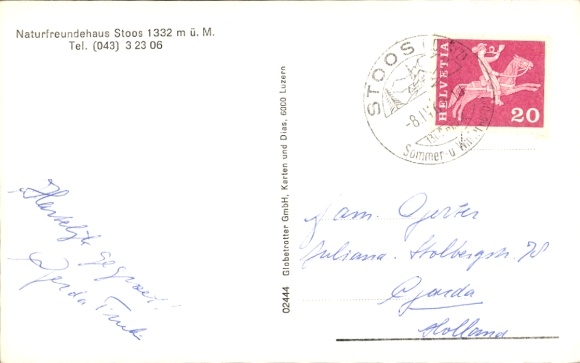 Naturfreundehaus Stoos 1332 m ü. M.
Tel. (043) 3 23 06
STOOS
-8.IV.
Sommer- u. Win
HELVETIA
20
02444 Globetrotter GmbH, Karten und Dias, 6000 Luzern
Hartelijk
Gegroet!
Fam.
Juliana. Stolbergstr. 70
Holland